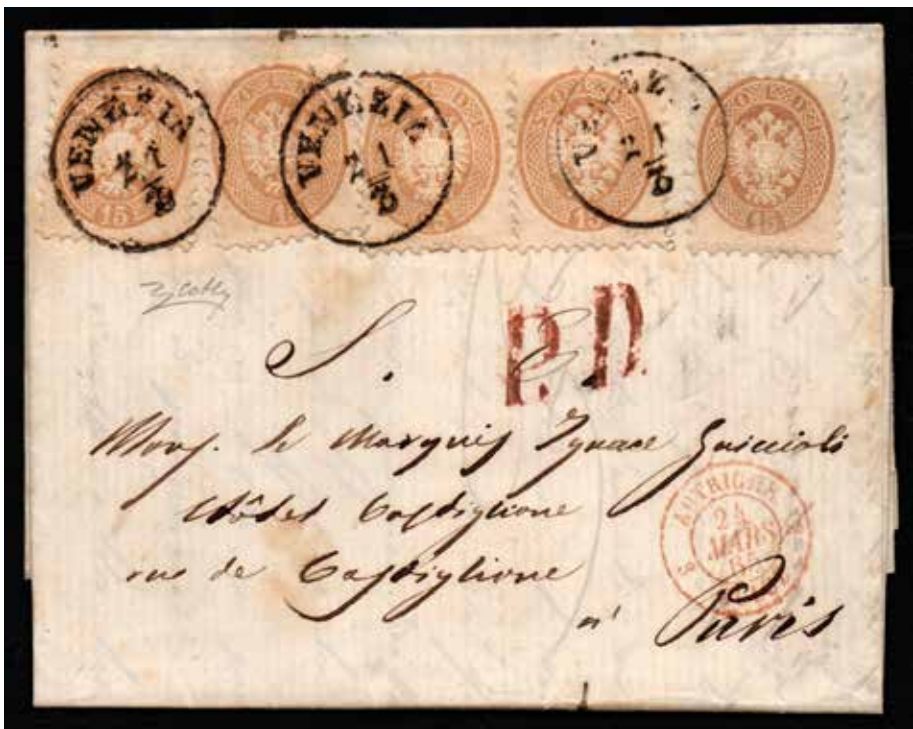 VENEZIA
21
3
VENEZIA
21
3
21
3
SOLDI
15
S. E.
P. D.
Mons. le Marquis Ignace Guiccioli
Hôtel Castiglione
rue de Castiglione
AUTRICHE
24
MARS
à Paris